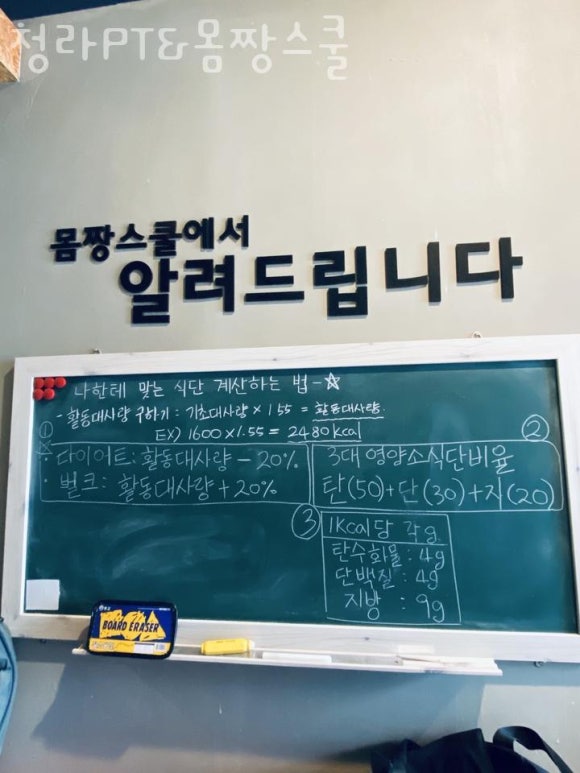 청라PT&몸짱스쿨
몸짱스쿨에서
알려드립니다
나한테 맞는 식단 계산하는 법-☆
- 활동대사량 구하기 : 기초대사량 × 1.55 = 활동대사량.
EX) 1600×1.55 = 2480kcal
①
· 다이어트: 활동대사량 - 20%
· 벌크: 활동대사량 + 20%
②
3대 영양소식단비율
탄(50)+단(30)+지(20)
③
1Kcal당 각g.
탄수화물 : 4g
단백질 : 4g
지방 : 9g
BOARD ERASER